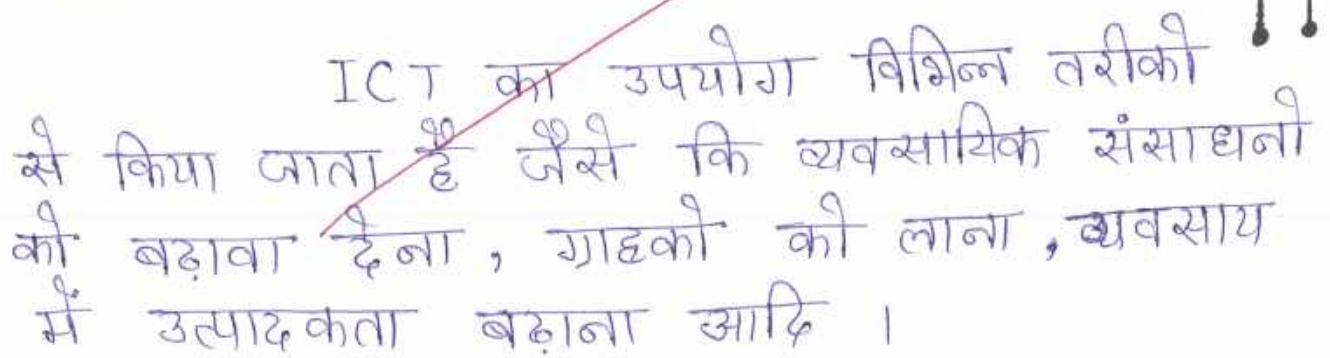 ICT का उपयोग विभिन्न तरीको
से किया जाता है जैसे कि व्यवसायिक संसाधनो
को बढ़ावा देना , ग्राहको को लाना , व्यवसाय
में उत्पादकता बढ़ाना आदि ।